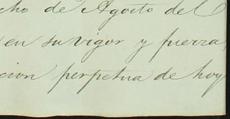 cho de Agosto del
en su vigor y fuerza,
cion perpetua de hoy